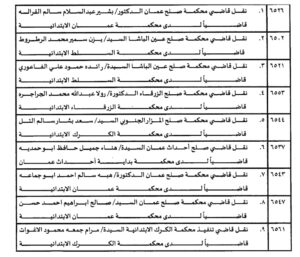 ٦٥٢٦ ١. نقل قاضي محكمة صلح عمان الدكتور/ بشير عبدالسلام سالم الفراله
قاضياً لدى محكمة عمان الابتدائية
٦٥٠٢ ٢. نقل قاضي محكمة صلح عين الباشا السيد/ يزن سمير محمد الطرطوط
قاضياً لدى محكمة السلط الابتدائية
٦٥٢١ ٣. نقل قاضي محكمة صلح عين الباشا السيدة/ رائده حمود علي الفاعوري
قاضياً لدى محكمة السلط الابتدائية
٦٥٥٣ ٤. نقل قاضي محكمة صلح الزرقاء الدكتورة/ رولا عبدالله محمد الجراجره
قاضياً لدى محكمة الزرقاء الابتدائية
٦٥٤٤ ٥. نقل قاضي محكمة صلح المزار الجنوبي السيد/ سعد بشار سالم التل
قاضياً لدى محكمة الكرك الابتدائية
٦٥٣٧ ٦. نقل قاضي صلح أحداث عمان السيدة/ هناء جميل حافظ ابو حمديه
قاضياً لدى محكمة بداية أحداث عمان
٦٥٤٣ ٧. نقل قاضي محكمة صلح عمان الدكتورة/ هبه سالم احمد ابو جماعه
قاضياً لدى محكمة عمان الابتدائية
٦٥٤٧ ٨. نقل قاضي محكمة صلح عمان السيد/ صالح ابراهيم احمد حسن
قاضياً لدى محكمة عمان الابتدائية
٦٥٦١ ٩. نقل قاضي تنفيذ محكمة الكرك الابتدائية السيدة/ مرام جمعه محمود الاغوات
قاضياً لدى محكمة الكرك الابتدائية